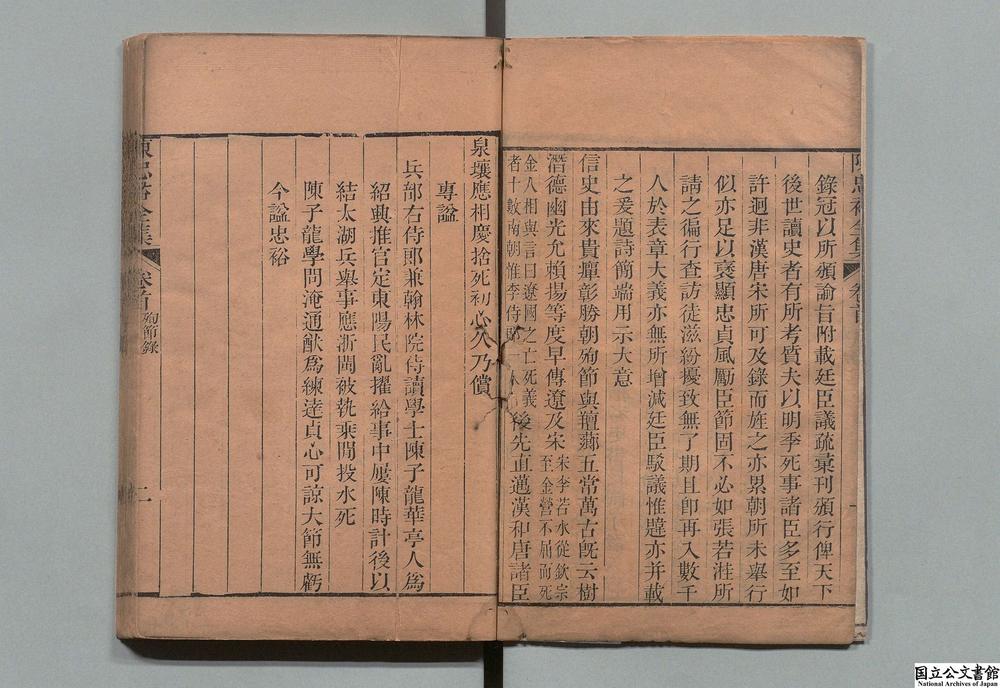 錄冠以所頒諭旨附載廷臣議疏彙刊頒行俾天下
後世讀史者有所考質夫以明季死事諸臣多至如
許迥非漢唐宋所可及錄而旌之亦累朝所未舉行
似亦足以褒顯忠貞風勵臣節固不必如張若溎所
請之徧行查訪徒滋紛擾致無了期且卽再入數千
人於表章大義亦無所增減廷臣駁議惟韙亦并載
之爰題詩簡端用示大意
信史由來貴癉彰勝朝殉節與羶薌五常萬古旣云樹
潛德幽光允賴揚等度早傳遼及宋宋李若水從欽宗至金營不屈而死
金人相與言曰遼國之亡死義者十數南朝惟李侍郎一人後先直邁漢和唐諸臣
泉壤應相慶捨死初心久乃償
專謚
兵部右侍郎兼翰林院侍讀學士陳子龍華亭人爲
紹興推官定東陽民亂擢給事中屢陳時計後以
結太湖兵舉事應浙閩被執乘閒投水死
陳子龍學問淹通猷爲練達貞心可諒大節無虧
今謚忠裕
陳忠裕全集 卷首 殉節錄 二
国立公文書館
National Archives of Japan